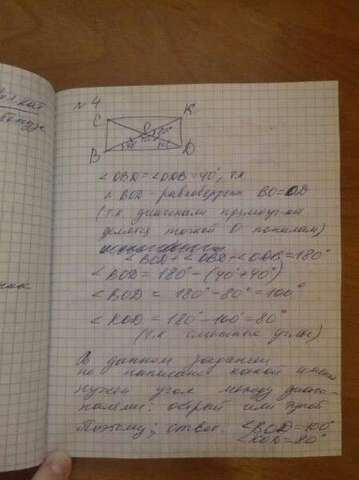 №4
C K
O
B D
∠OBD = ∠ODB = 40°, т.к
△ BOD - равнобедрен BO=OD
(т.к. диагонали прямоуг-ка
делятся точкой O пополам)
∠BOD + ∠OBD + ∠ODB = 180°
∠BOD = 180° - (40° + 40°)
∠BOD = 180° - 80° = 100°
∠KOD = 180° - 100° = 80°
(т.к смежные углы)
В данном задании
не написано какой именно
нужен угол между диаго-
налями: острый или тупой
Поэтому; ответ: ∠BOD = 100°
∠KOD = 80°